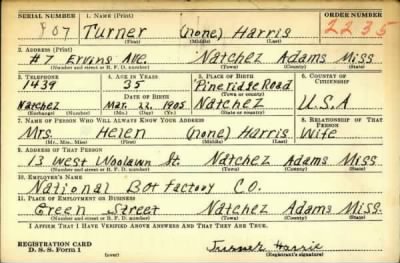 SERIAL NUMBER 1. NAME (Print) ORDER NUMBER
907 Turner (none) Harris 2235
(First) (Middle) (Last)
2. ADDRESS (Print)
#7 Erving Ave. Natchez Adams Miss.
(Number and street or R. F. D. number) (Town) (County) (State)
3. TELEPHONE 4. AGE IN YEARS 5. PLACE OF BIRTH 6. COUNTRY OF CITIZENSHIP
1439 35 Pineridge Road
DATE OF BIRTH (Town or county)
Natchez Mar. 22, 1905 Natchez U.S.A
(Exchange) (Number) (Mo.) (Day) (Yr.) (State or country)
7. NAME OF PERSON WHO WILL ALWAYS KNOW YOUR ADDRESS 8. RELATIONSHIP OF THAT PERSON
Mrs. Helen (none) Harris Wife
(Mr., Mrs., Miss) (First) (Middle) (Last)
9. ADDRESS OF THAT PERSON
13 West Woolawn St. Natchez Adams Miss.
(Number and street or R. F. D. number) (Town) (County) (State)
10. EMPLOYER'S NAME
National Box Factory CO.
11. PLACE OF EMPLOYMENT OR BUSINESS
Green Street Natchez Adams Miss.
(Number and street or R. F. D. number) (Town) (County) (State)
I AFFIRM THAT I HAVE VERIFIED ABOVE ANSWERS AND THAT THEY ARE TRUE.
REGISTRATION CARD Turner Harris
D. S. S. Form 1 (over) (Registrant's signature)